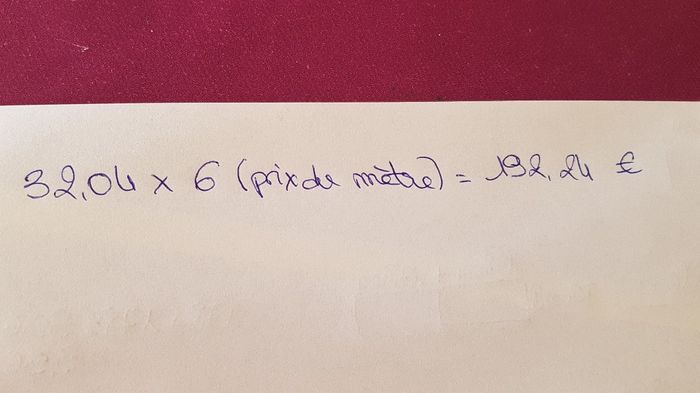 32,04 x 6 (prix de mètre) = 192,24 €